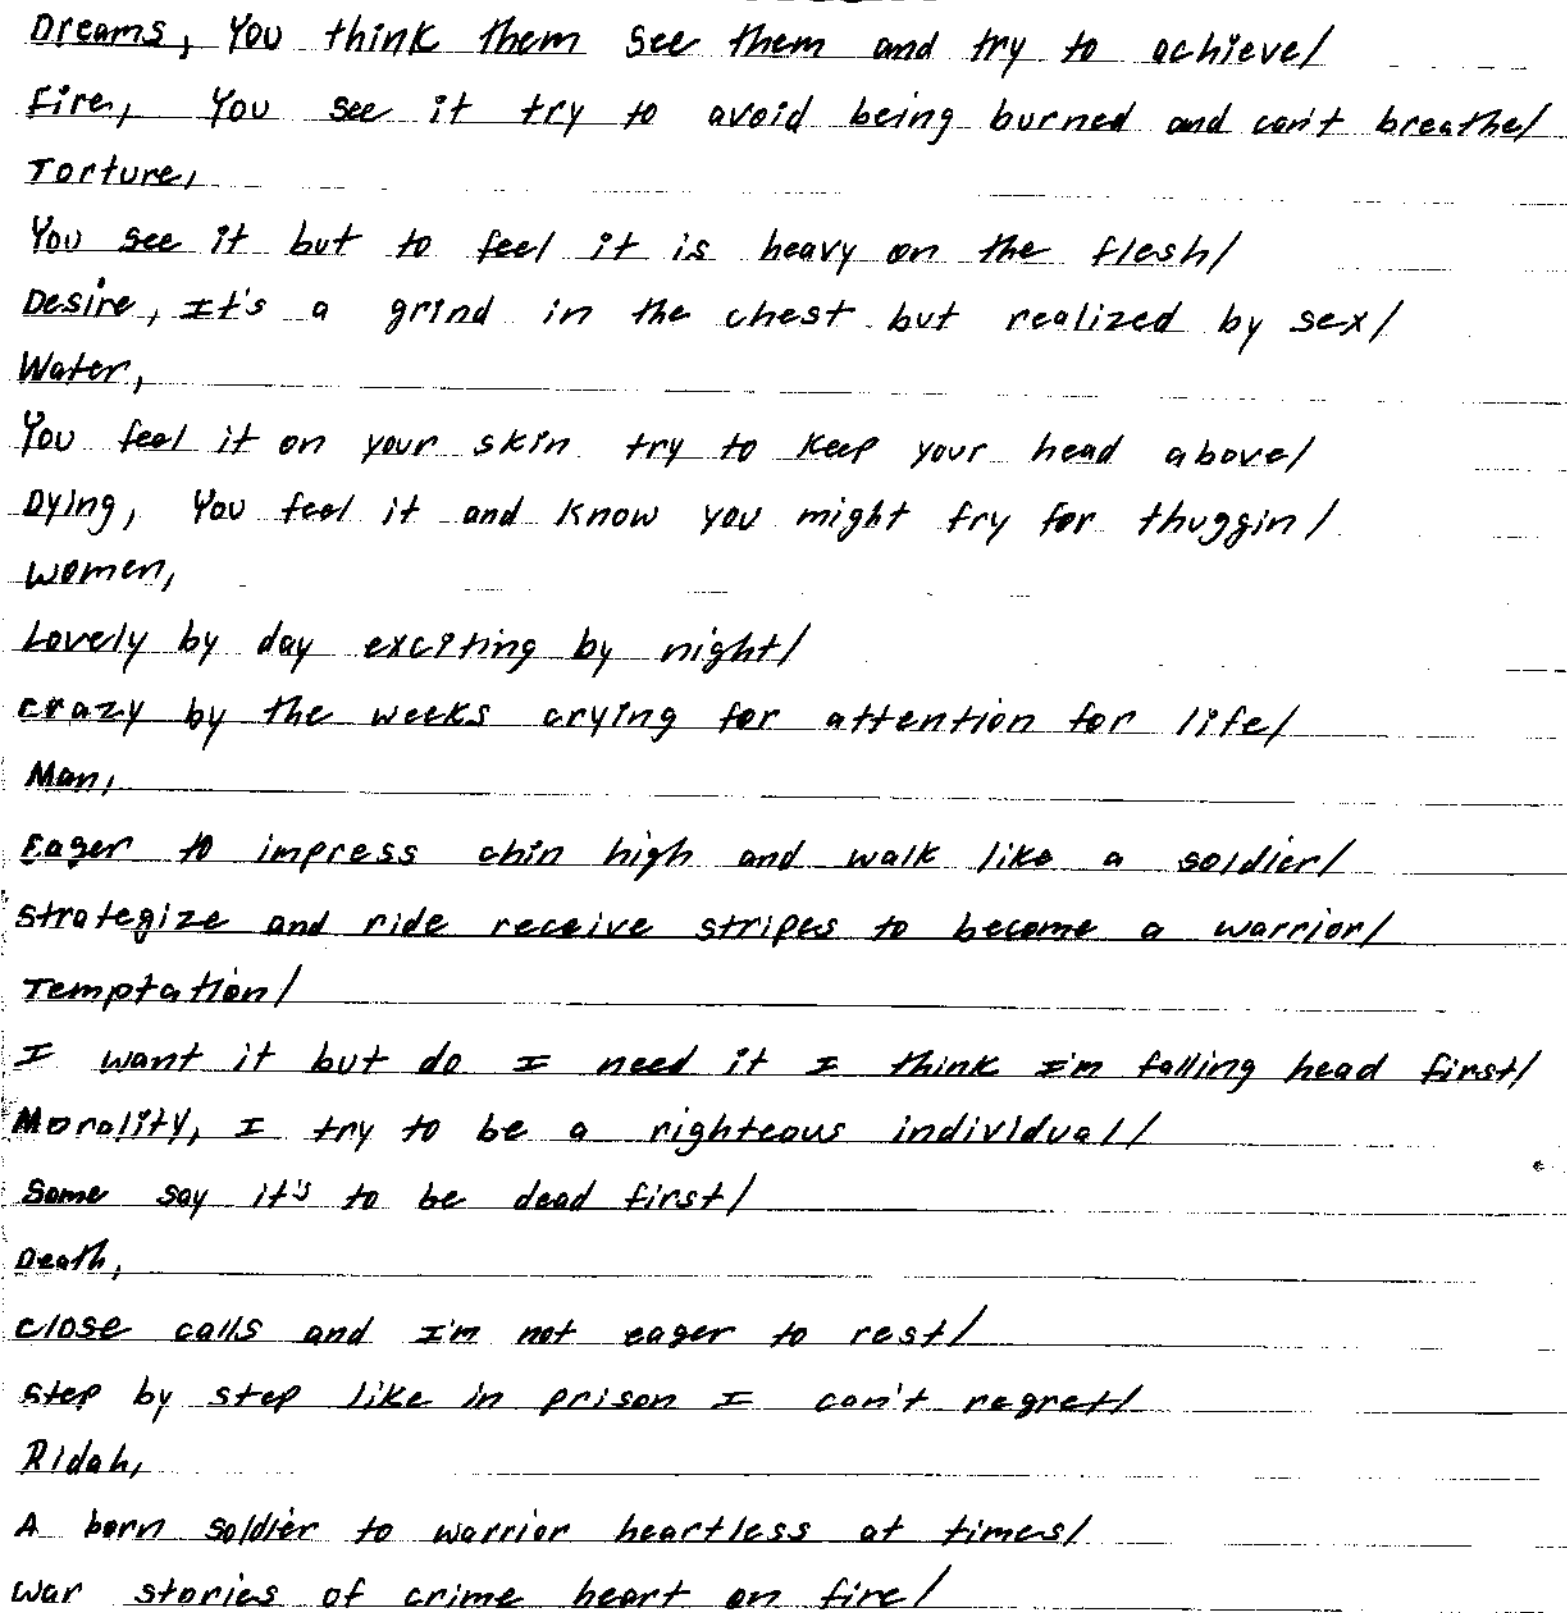 Dreams, You think them see them and try to achieve/
Fire, You see it try to avoid being burned and can't breathe/
Torture,
You see it but to feel it is heavy on the flesh/
Desire, It's a grind in the chest but realized by sex/
Water,
You feel it on your skin try to keep your head above/
Dying, You feel it and know you might fry for thuggin/
Women,
Lovely by day exciting by night/
crazy by the weeks crying for attention for life/
Man,
Eager to impress chin high and walk like a soldier/
strategize and ride receive stripes to become a warrior/
Temptation/
I want it but do I need it I think I'm falling head first/
Morality, I try to be a righteous individual/
Some say it's to be dead first/
Death,
close calls and I'm not eager to rest/
step by step like in prison I can't regret/
Ridah,
A born soldier to warrior heartless at times/
war stories of crime heart on fire/